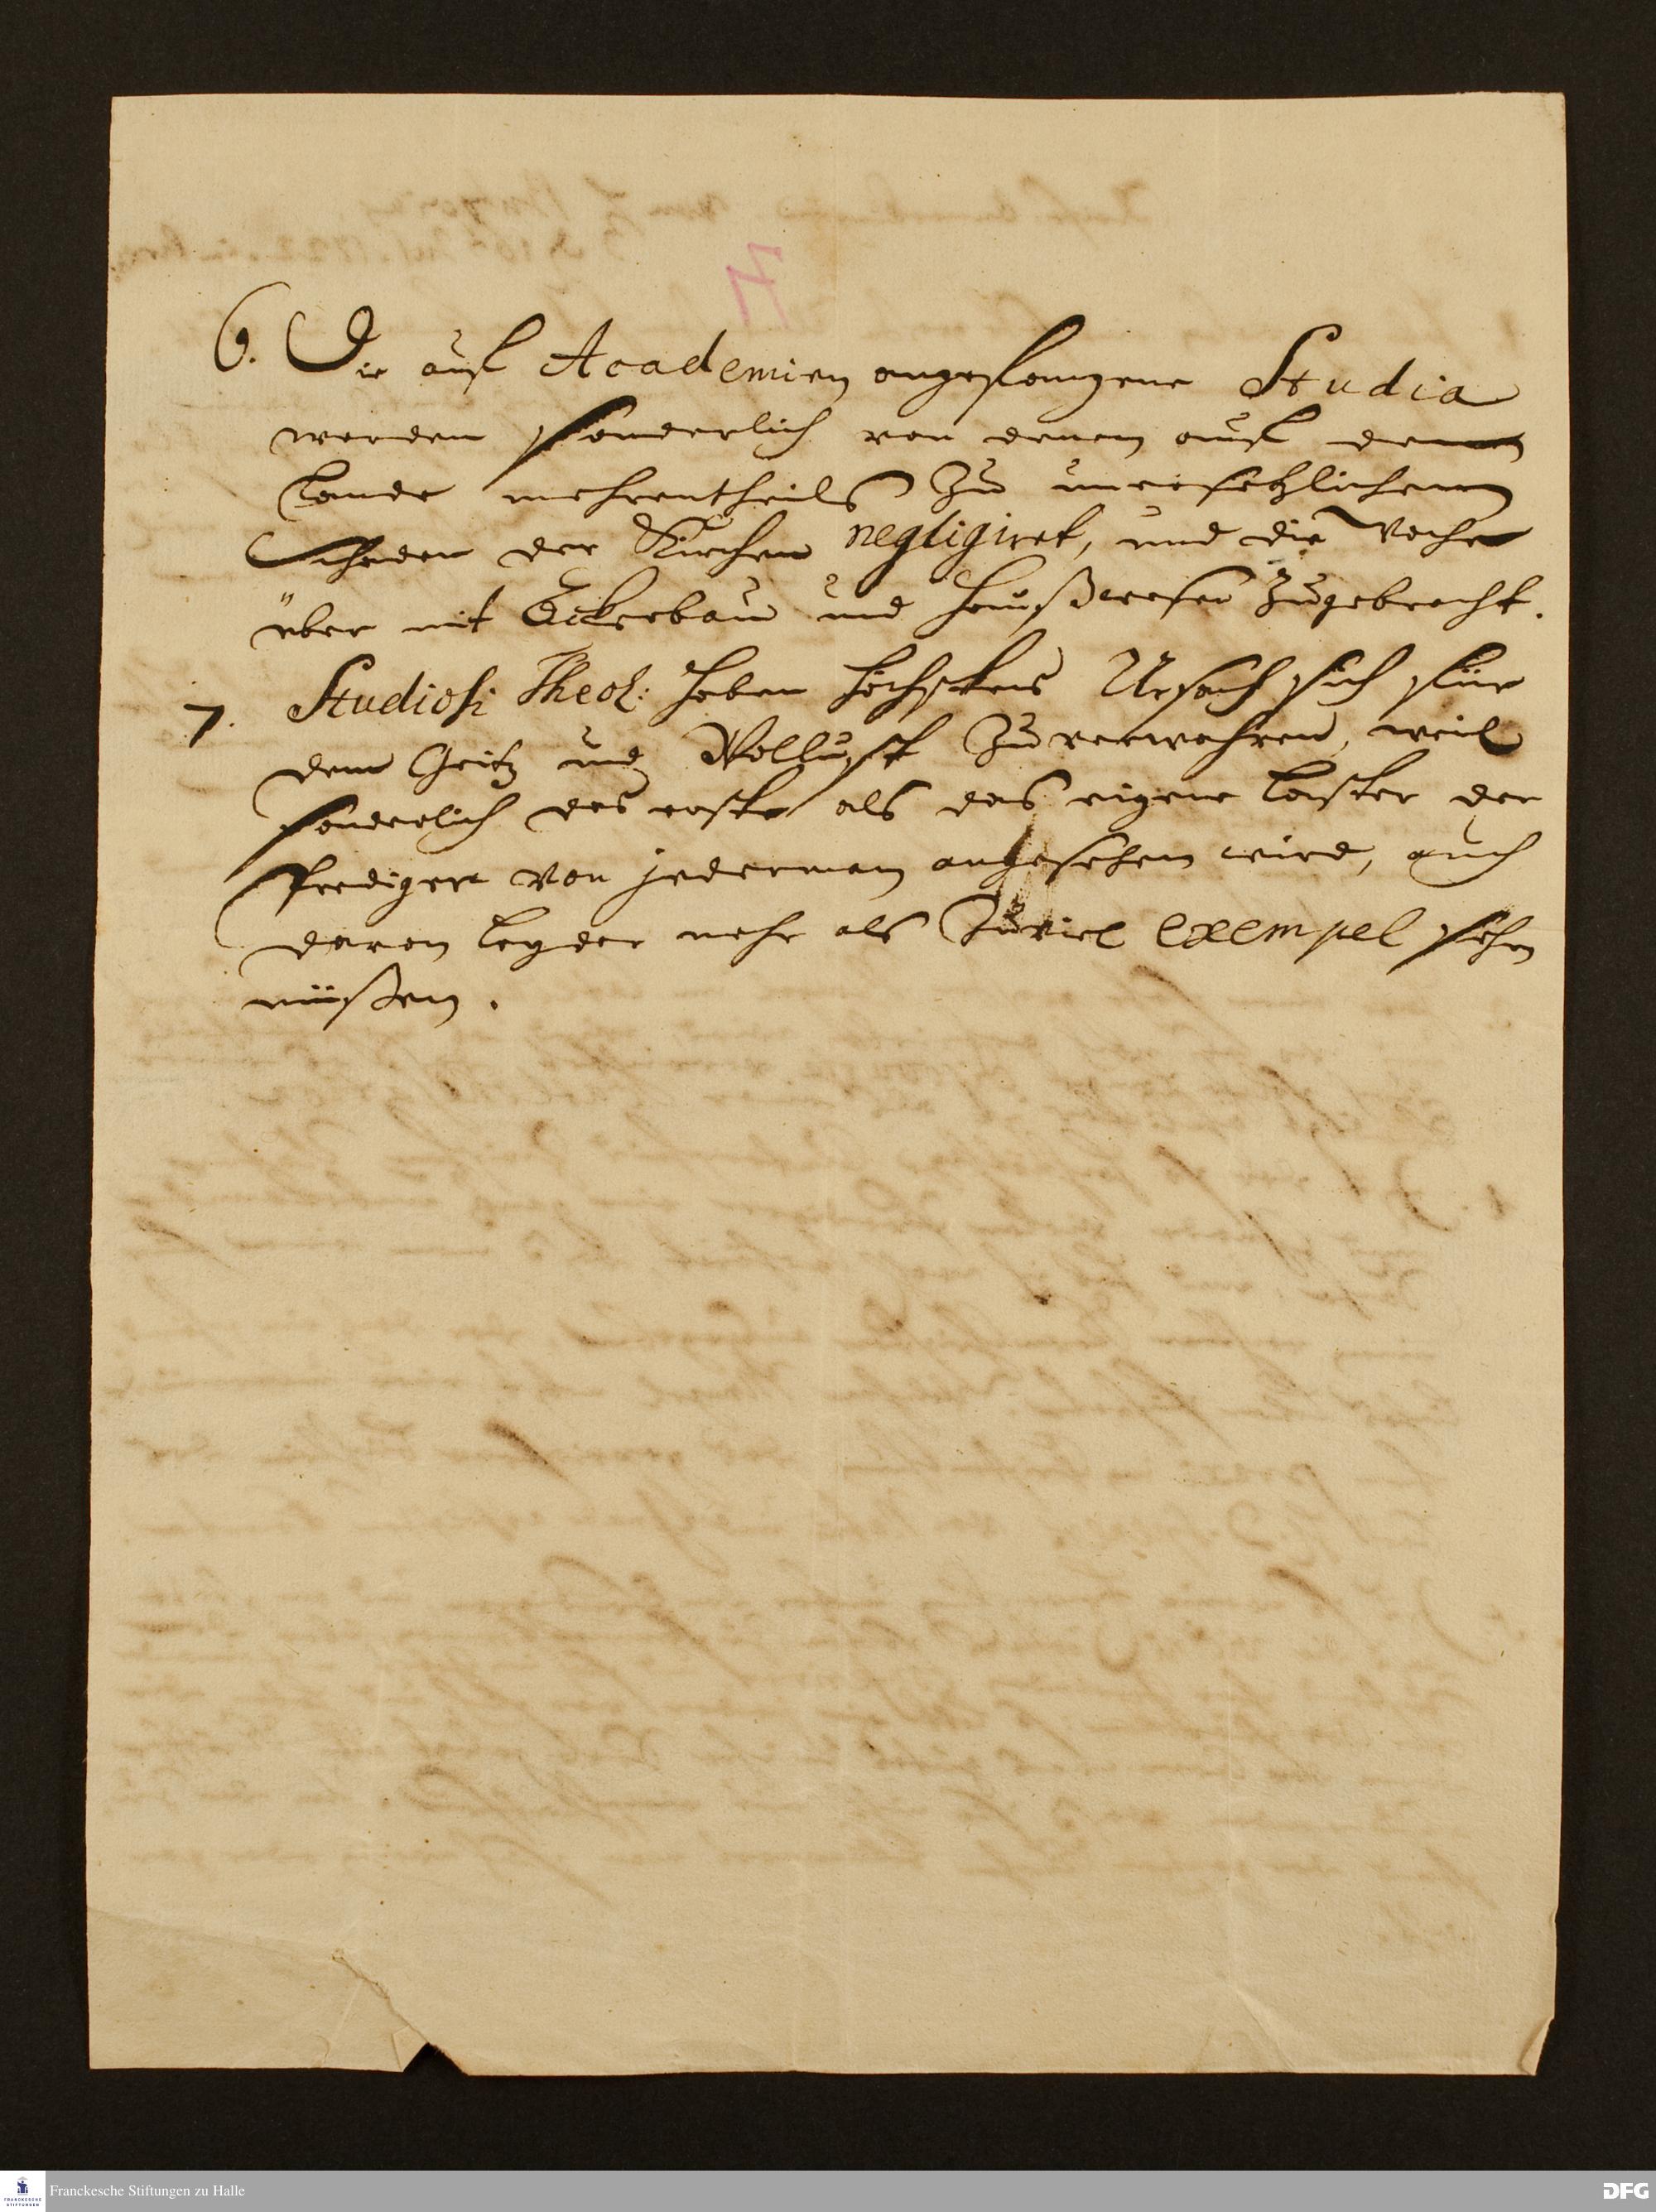 6. Die auf Academien angefangene Studia
werden sonderlich von denen auf dem
Lande mehrentheils zu unersetzlichem
Schaden der Kirchen negligiret, und die Woche
über mit Ackerbau und Haußwesen zugebracht.
7. Studiosi Theol: haben höchstens Ursach sich für
dem Geitz und Wollust zu verwahren, weil
sonderlich das erste als das eigene Laster der
Prediger von jederman angesehen wird, auch
davon leyder mehr als zu viel exempel sehen
müßen.
Franckesche Stiftungen zu Halle
FRANCKESCHE STIFTUNGEN
DFG